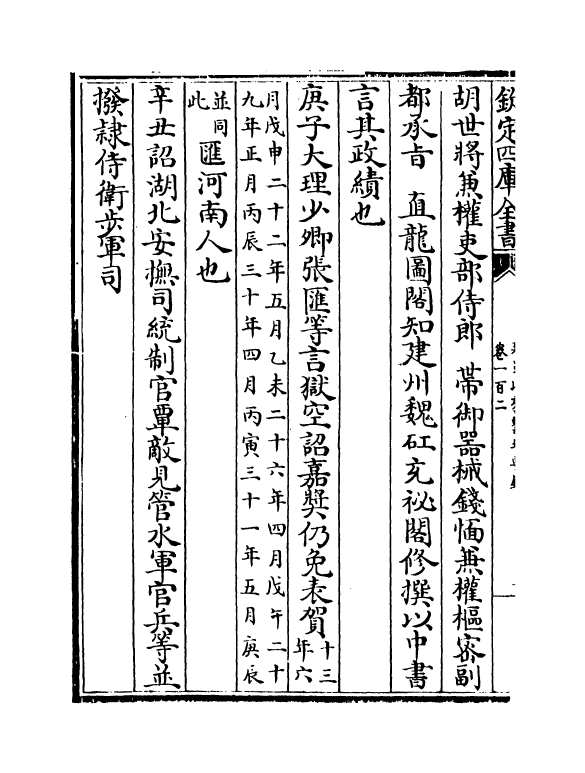 欽定四庫全書
卷一百二
胡世將兼權吏部侍郎　帶御器械錢愐兼權樞密副
都承旨　直龍圖閣知建州魏矼充祕閣修撰以中書
言其政績也
庚子大理少卿張匯等言獄空詔嘉奬仍免表賀十三年六
月戊申二十二年五月乙未二十六年四月戊午二十
九年正月丙辰三十年四月丙寅三十一年五月庚辰
並同此匯河南人也
辛丑詔湖北安撫司統制官覃敵見管水軍官兵等並
撥隸侍衛步軍司